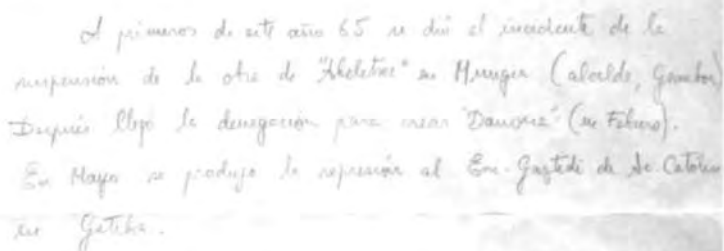 A primeros de este año 65 se dió el incidente de la
suspensión de la obra de "Akelarre" en Munguia (alcalde,
Después llegó la denegación para crear "Danona" (en Febrero).
En Mayo se produjo la represión al Eus. Gaztedi de Ac. Católica
en Getxo.